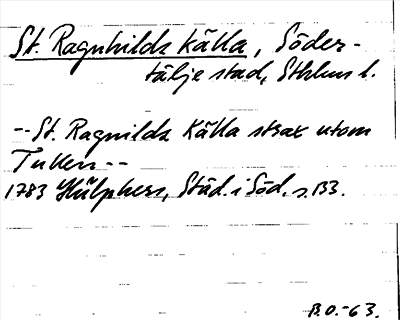 St. Ragnhilds källa, Söder-
tälje stad, Sthlms l.
--St. Ragnilds Källa strax utom
Tullen--
1783 Hülphers, Städ. i Söd. s. 133.
B.O.-63.